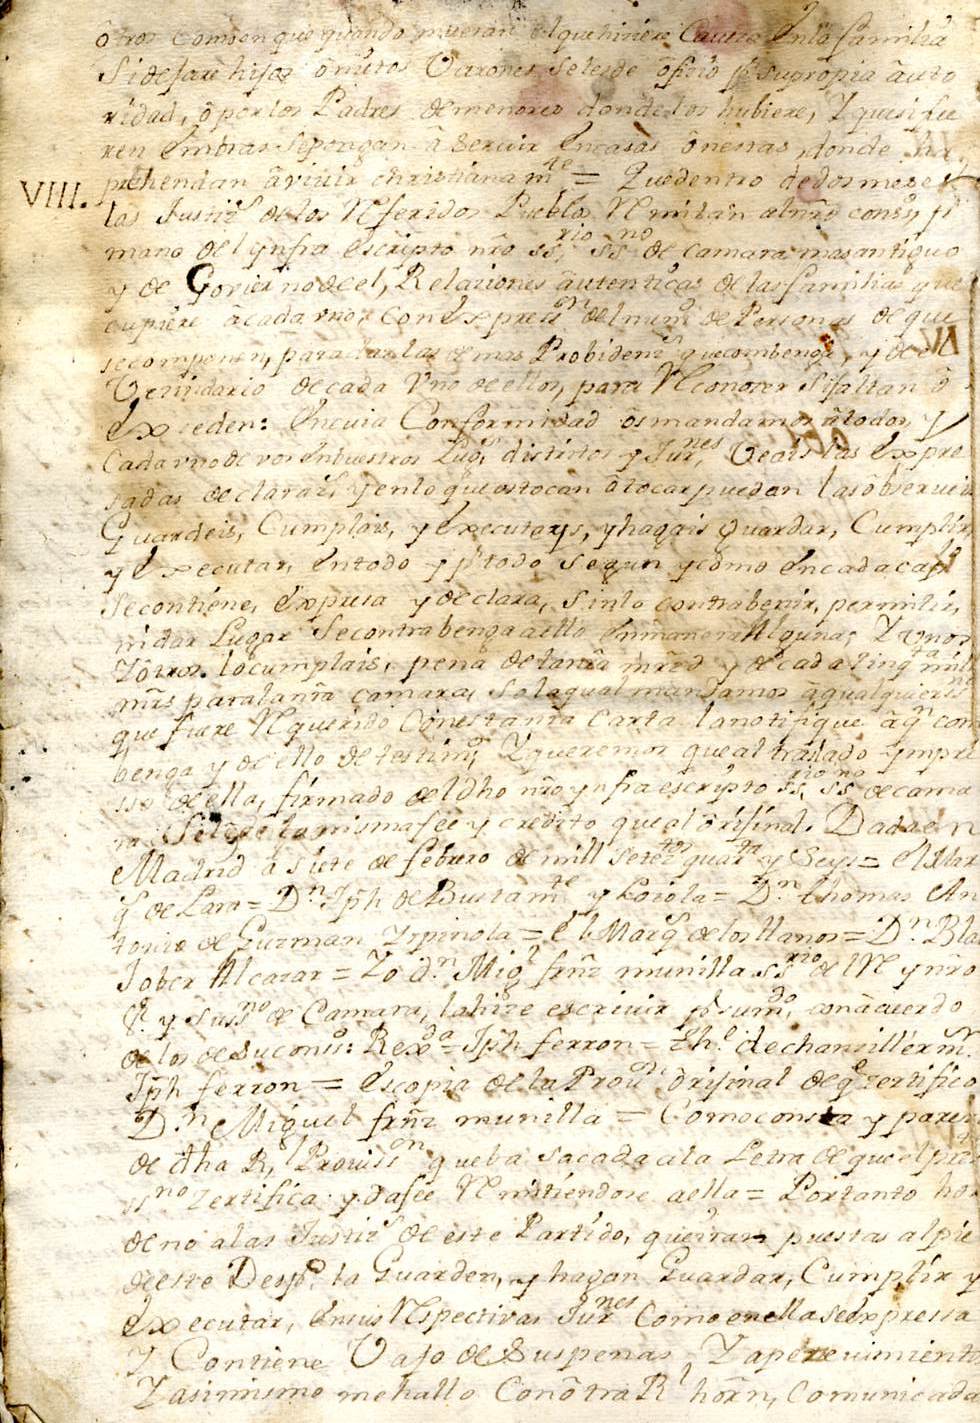 ôtros comsen que quando mueran el que hiciere Caveza En la familia
Si dejare hijos ô nietos Varones, se les de ôfizio pr su propia âuto
ridad, ô por los Padres de menores donde los hubiere, Y que si fue
ren Embras se pongan â Servir En casas ônestas donde
prehendan â vivir christianamte = Que dentro de dos meses
VIII.
las Justizs de los Referidos Pueblos Remitan al nro consejo pr
mano del ynfra escripto nro ssrio ssno de camara mas antiguo
y de Govierno de el, Relaziones âutenticas de las familias que
cupiere a cada vno, con Expreson del numo de Personas de que
se componen, para dar las demas Probidenzs que combenga, y de el
Vezindario de cada Vno de ellos, para Reconozer si faltan ô
Exceden: En cuia Conformidad ôs mandamos â todos y
Cada vno de vos En buestros Lugs distritos y Jurnes, Veais las Expre
sadas declarazs, y en lo que os tocan ô tocar puedan las observeis
Guardeis, Cumplais, y Executeys, y hagais guardar, Cumplir
y Executar, en todo y pr todo segun y como En cada capo
se contiene, Expresa y declara, sin lo contrabenir, permitir,
ni dar Lugar se contrabenga a ello En manera Alguna; Y vnos
Y ôtros lo cumplais, pena de la nra mrzd y de cada zinqta mill
mrs para la nra camara, so la qual mandamos â qualquier ssno
que fuere Requerido Con esta nra Carta la notifique â qn con
benga y de ello de testimo; Y queremos que al traslado ympre
sso de ella, firmado del dho nro ynfra escripto ssrio ssno de cama
ra Se le de la misma fee y credito que al ôrijinal. Dada en
Madrid a siete de febrero de mill setezos quarta y Seys = El Mar
qs de Lara = Dn Jph de Bustamte y Loiola = Dn thomas An
tonio de Guzman Yspinola = El Marqs de los llanos = Dn Bla
Jober Alcazar = Yo dn Migl frnz munilla ssrio de el Rey nro
Sr y su ssno de Camara, la hize escrivir pr su mdo, con âcuerdo
de los de su conso: Rexda = Jph ferron = the de chanziller mr
Jph ferron = Es copia de la Provon ôrijinal de qe zertifico
Dn Miguel frnz munilla = Como consta y parez
de dha Rl Provission que ba sacada a la Letra de que el prte
ssno zertifica y da fee Remitiendose a ella = Por tanto hor
deno a las Justizs de este Partido, que iran puestas al pie
de este Despo la Guarden, y hagan Guardar, Cumplir y
Executar, En sus Respectivas Jurnes Como en ella se Expressa
Y Contiene Vajo de Sus penas Y aperzevimiento
Y asimismo me hallo Con ôtra Rl horn, Comunicada